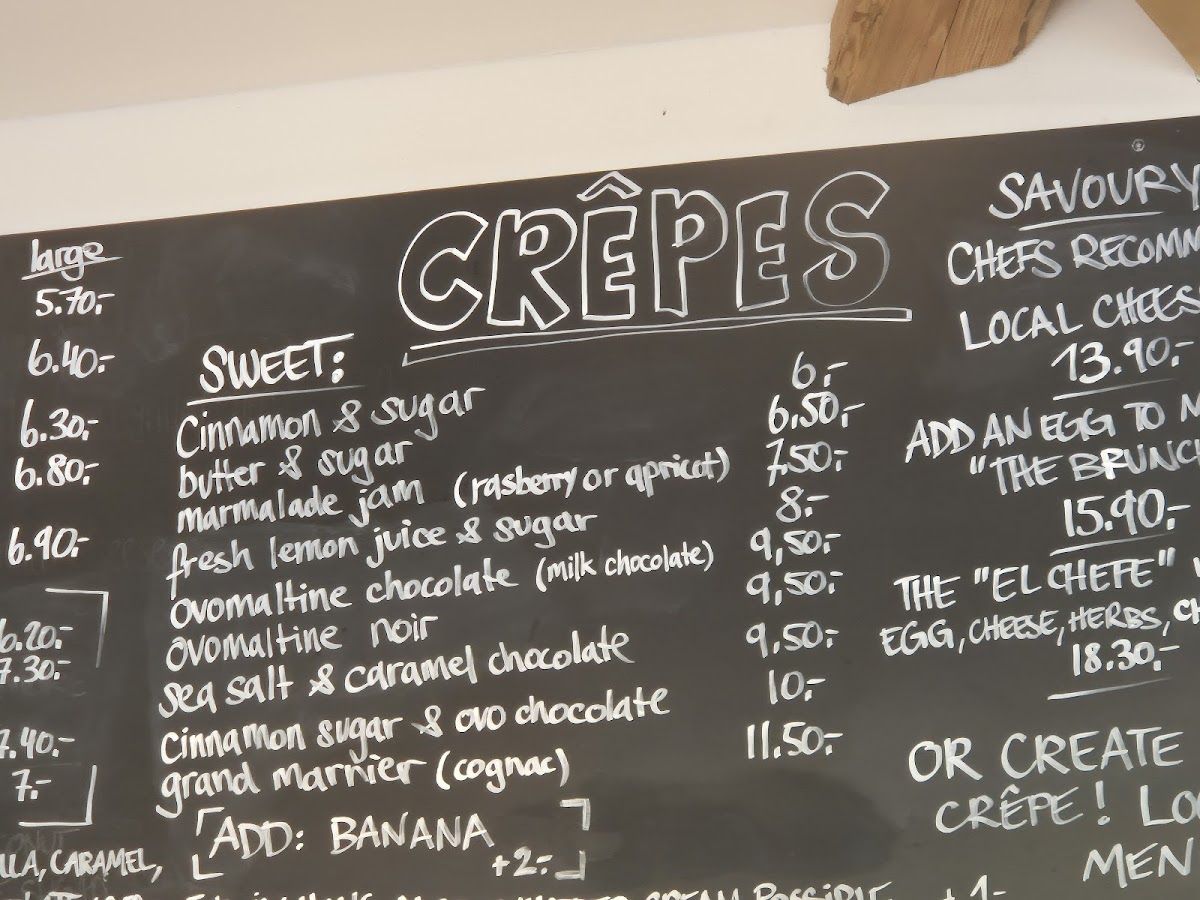 large
5.70.-
6.40.-
6.30.-
6.80.-
6.90.-
6.20.-
7.30.-
7.40.-
7.-
CARAMEL,
CRÊPES
SWEET:
Cinnamon & sugar 6.-
butter & sugar 6,50.-
marmalade jam (rasberry or apricot) 7.50.-
fresh lemon juice & sugar 8.-
ovomaltine chocolate (milk chocolate) 9,50.-
ovomaltine noir 9,50.-
sea salt & caramel chocolate 9,50.-
cinnamon sugar & ovo chocolate 10.-
grand marnier (cognac) 11.50.-
ADD: BANANA
+2.-
POSSIBLE +1-
SAVOURY
CHEFS RECOMM
LOCAL CHEES
13.90.-
ADD AN EGG TO M
"THE BRUNCH
15.90.-
THE "EL CHEFE"
EGG, CHEESE, HERBS, CH
18.30.-
OR CREATE
CRÊPE! LOO
MEN